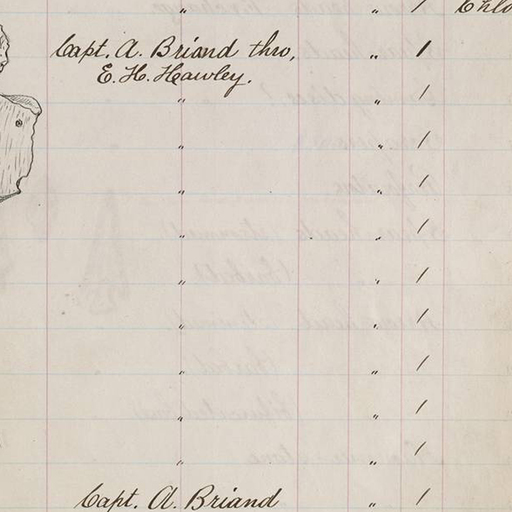 " " /
Capt. A. Briand thro, " 1
E. H. Hawley.
" " 1
" " 1
" " 1
" " 1
" " 1
" " 1
" " 1
" " 1
" " 1
Capt. A. Briand " 1